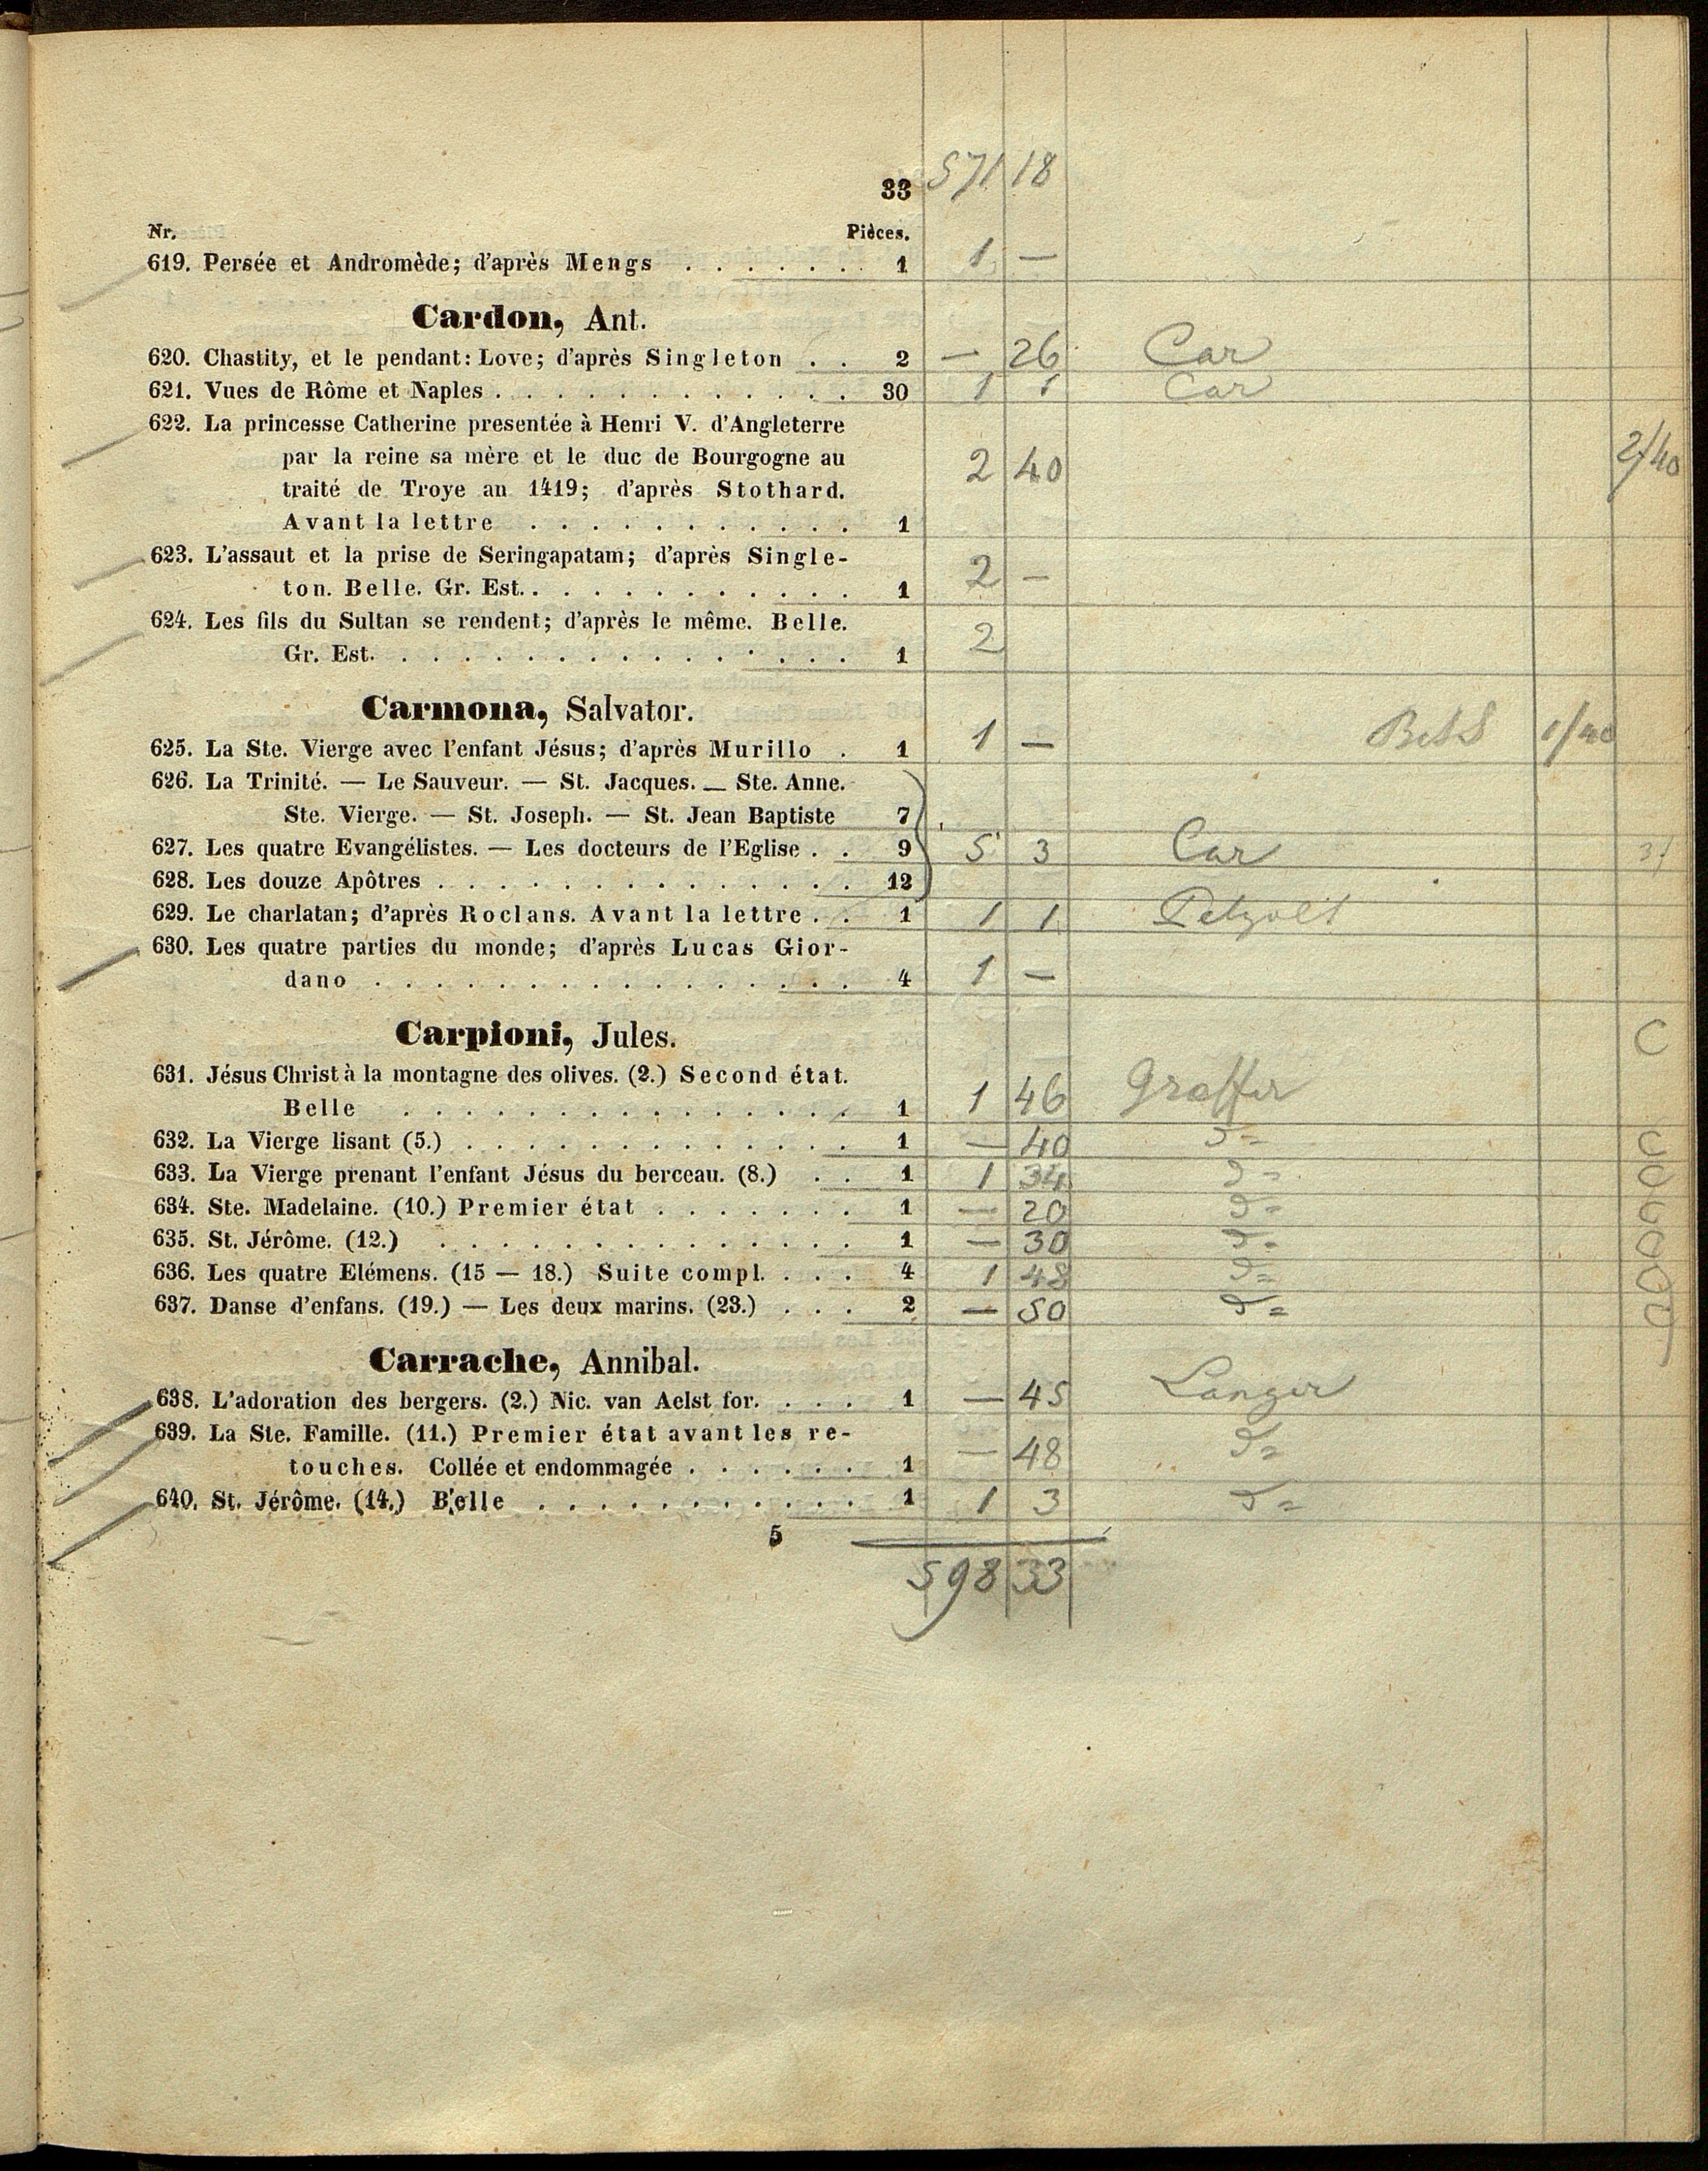 33 571 18
Nr. Pièces.
619. Persée et Andromède; d'après Mengs . . . . . . . 1 1 —
Cardon, Ant.
620. Chastity, et le pendant: Love; d'après Singleton . . 2 — 26 Car
621. Vues de Rôme et Naples . . . . . . . . . . . . 30 1 1 Car
622. La princesse Catherine presentée à Henri V. d'Angleterre
par la reine sa mère et le duc de Bourgogne au 2 40 2/40
traité de Troye an 1419; d'après Stothard.
Avant la lettre . . . . . . . . . . . 1
623. L'assaut et la prise de Seringapatam; d'après Single-
ton. Belle. Gr. Est. . . . . . . . . . . . 1 2 —
624. Les fils du Sultan se rendent; d'après le même. Belle.
Gr. Est. . . . . . . . . . . . . . . . 1 2
Carmona, Salvator.
625. La Ste. Vierge avec l'enfant Jésus; d'après Murillo . 1 1 — 1/40
626. La Trinité. — Le Sauveur. — St. Jacques. — Ste. Anne.
Ste. Vierge. — St. Joseph. — St. Jean Baptiste 7
627. Les quatre Evangélistes. — Les docteurs de l'Eglise . . 9 5 3 Car
628. Les douze Apôtres . . . . . . . . . . . . . . 12
629. Le charlatan; d'après Roclans. Avant la lettre . . 1 1 1 Petzolt
630. Les quatre parties du monde; d'après Lucas Gior-
dano . . . . . . . . . . . . . . . . 4 1 —
Carpioni, Jules.
C
631. Jésus Christ à la montagne des olives. (2.) Second état.
Belle . . . . . . . . . . . . . . . 1 1 46 Graffer
632. La Vierge lisant (5.) . . . . . . . . . . . . . 1 — 40 d= C
633. La Vierge prenant l'enfant Jésus du berceau. (8.) . . 1 1 34 d= C
634. Ste. Madelaine. (10.) Premier état . . . . . . . 1 — 20 d= C
635. St. Jérôme. (12.) . . . . . . . . . . . . . . 1 — 30 d= C
636. Les quatre Elémens. (15 — 18.) Suite compl. . . . 4 1 48 d= C
637. Danse d'enfans. (19.) — Les deux marins. (23.) . . . 2 — 50 d= C
Carrache, Annibal.
638. L'adoration des bergers. (2.) Nic. van Aelst for. . . . 1 — 45 Langer
639. La Ste. Famille. (11.) Premier état avant les re-
touches. Collée et endommagée . . . . . . 1 — 48 d=
640. St. Jérôme. (14.) Belle . . . . . . . . . . . 1 1 3 d=
5
598 33